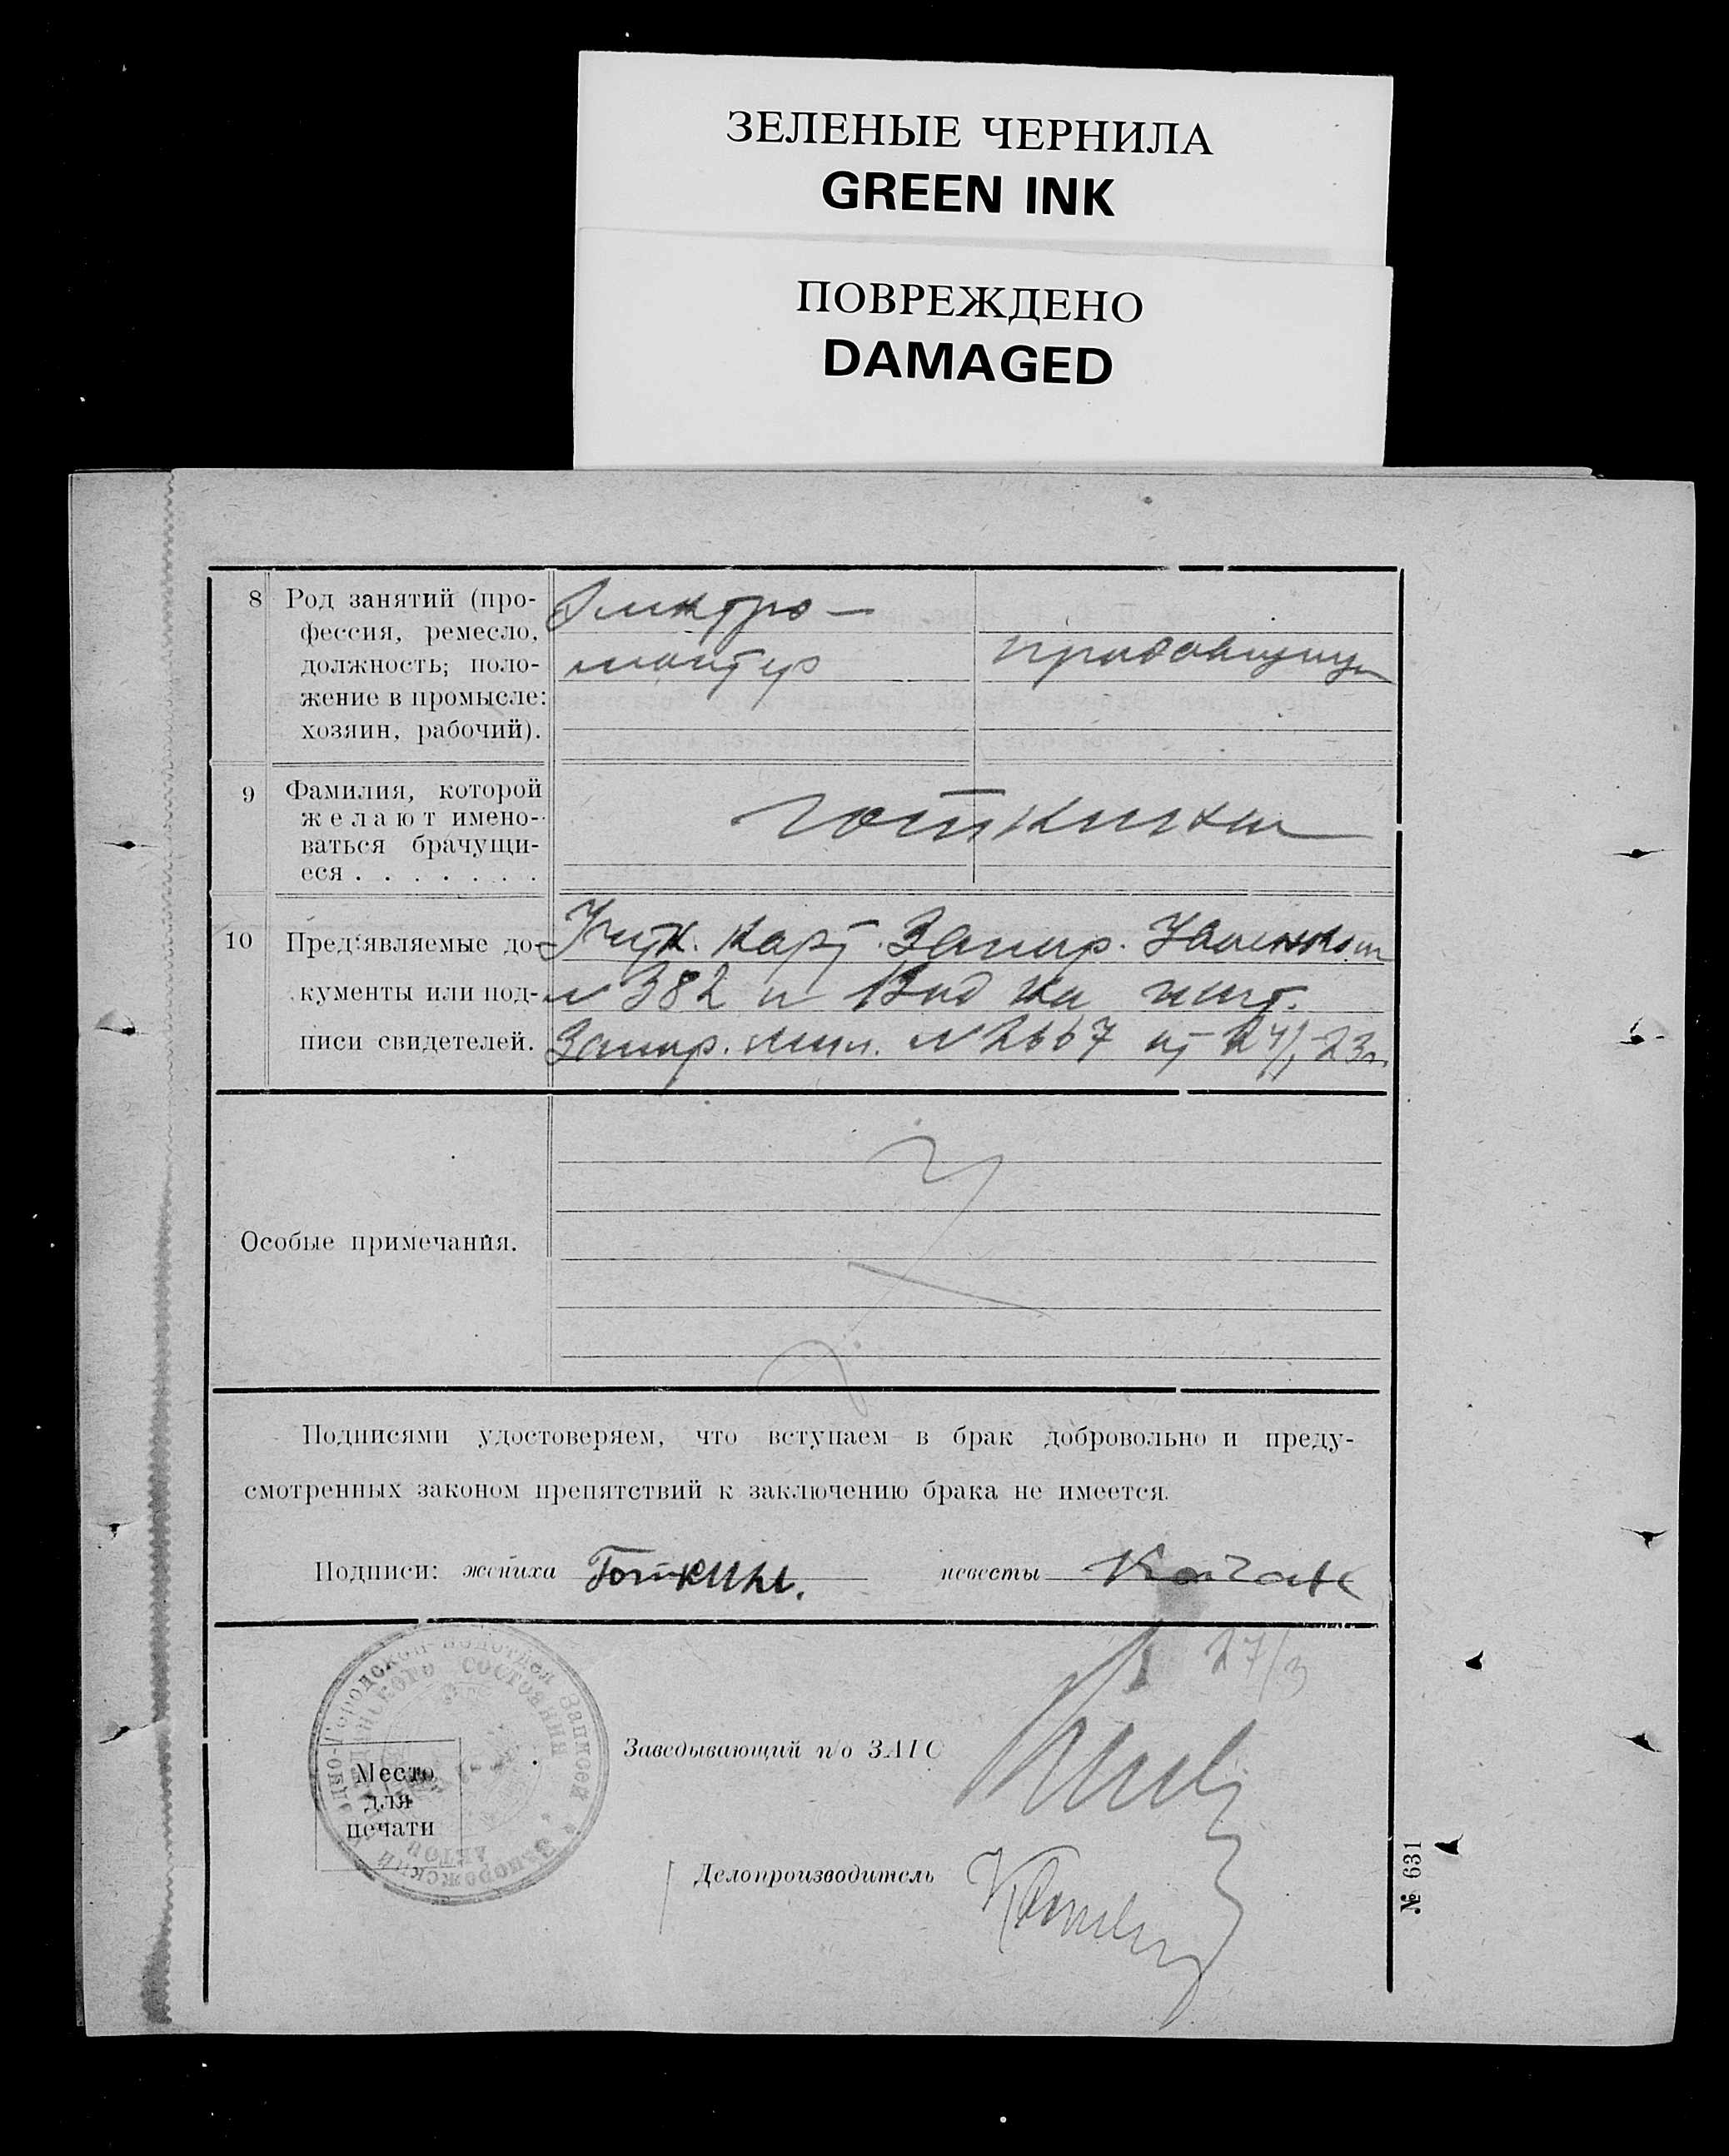 ЗЕЛЕНЫЕ ЧЕРНИЛА
GREEN INK
ПОВРЕЖДЕНО
DAMAGED
8 Род занятий (про-
фессия, ремесло,
должность; поло-
жение в промысле:
хозяин, рабочий).
Электро-
монтер
продавщица
9 Фамилия, которой
желают имено-
ваться брачущи-
еся . . . . . . .
10 Пред'являемые до-
кументы или под-
писи свидетелей.
Учетн. карт. Запор.
№ 382 и Вид на жит.
Запор. Мил. № 2667 от 24/ 23г.
Особые примечания.
Подписями удостоверяем, что вступаем в брак добровольно и преду-
смотренных законом препятствий к заключению брака не имеется.
Подписи: жениха Готкин. невесты
27/3
Городской подотдел Записей
Запорожский
Актов
состояния
Место
для
печати
Заведывающий п/о ЗАГС
Делопроизводитель
№ 631